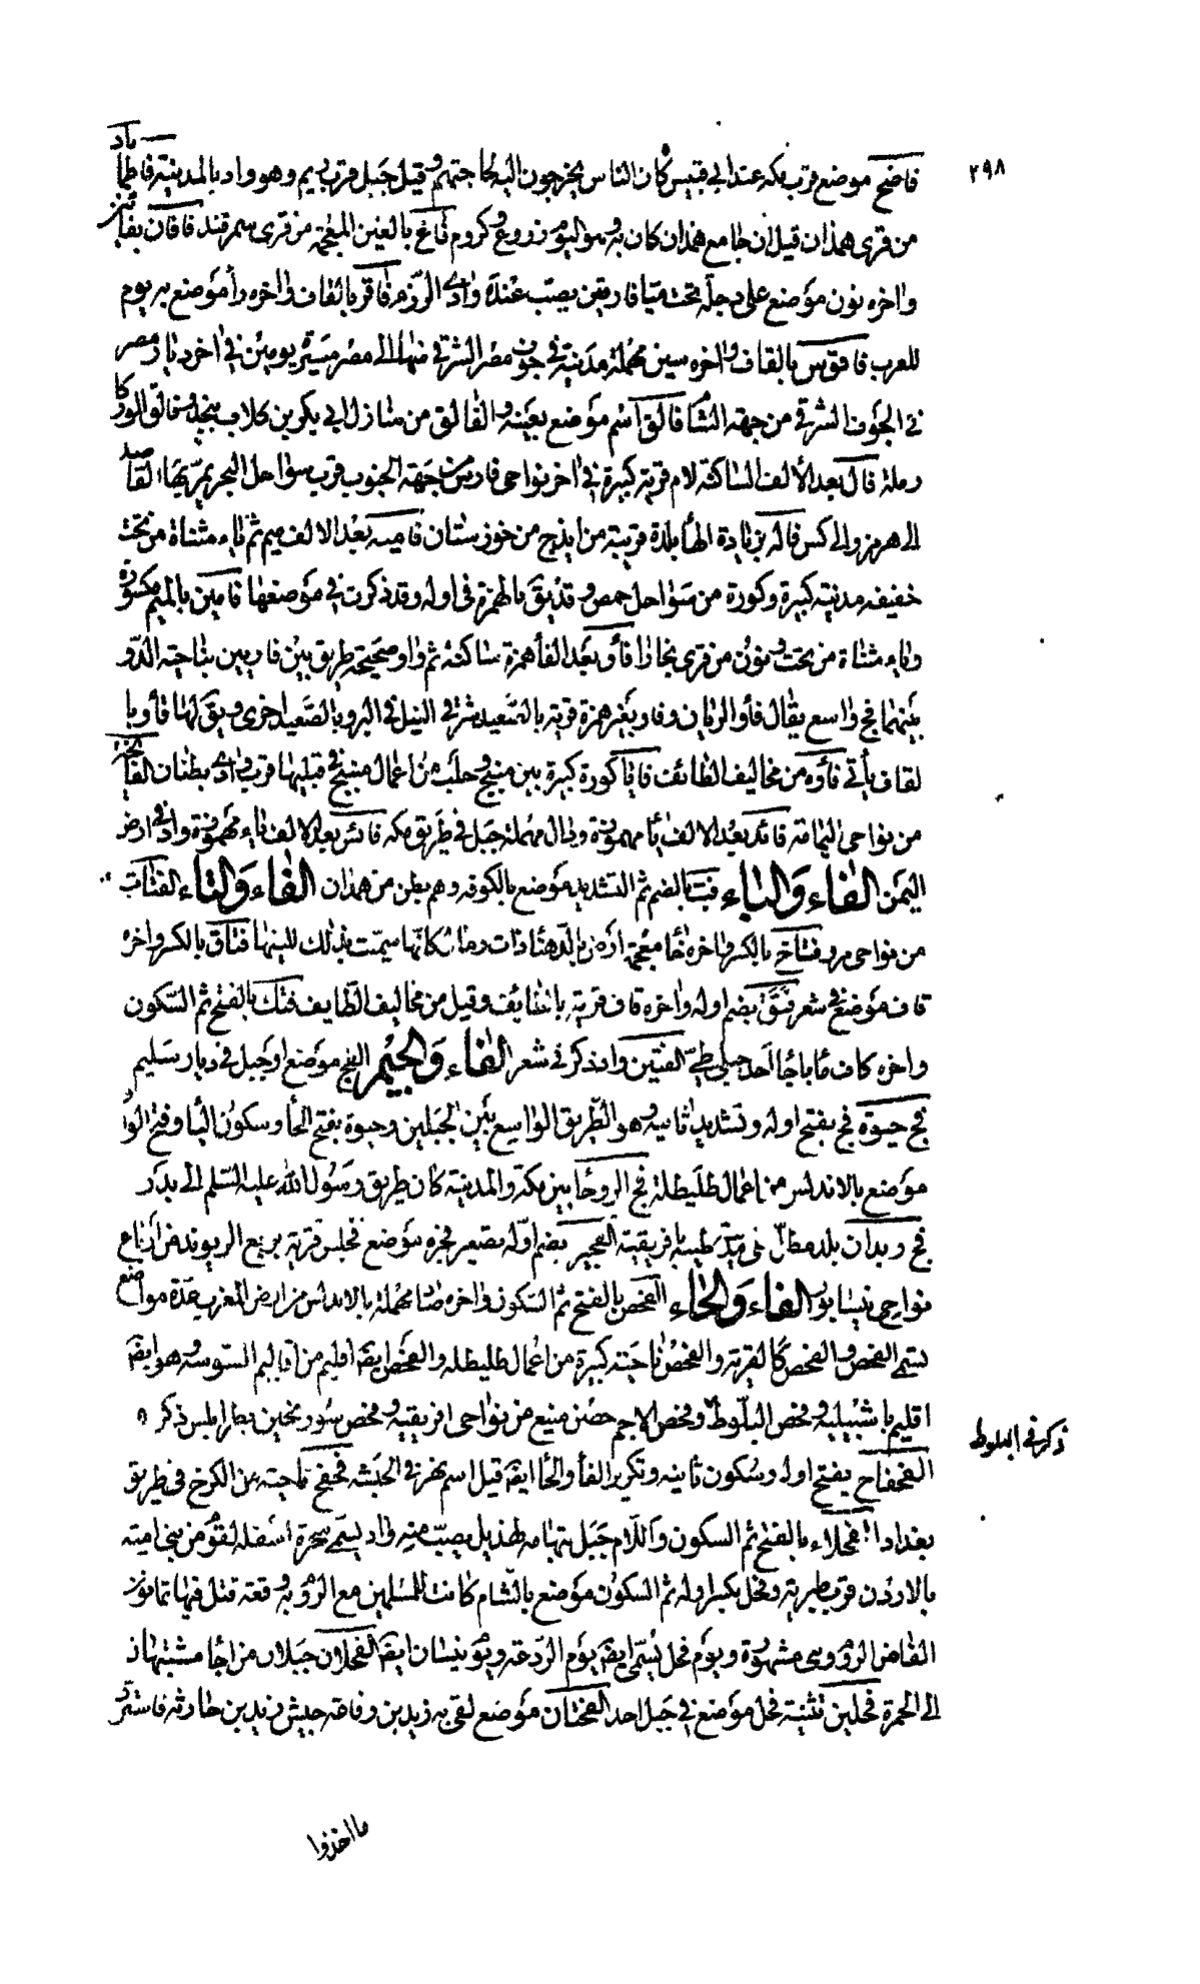 ٢٩٨
فاضح موضع قرب مكه عند ابي قبيس كان الناس يخرجون اليه لحاجتهم وقيل جبل قرب ريم وهو واد بالمدينة فاطماباد
من قرى همذان قيل ان جامع همذان كان به وهو اليوم زروع وكروم فاغ بالغين المعجمة من قرى سمرقند فافان بفائين
واخره نون موضع على دجلة تحت ميافارقين يصب عنده وادي الرزم فاقر بالقاف واخره رأ موضع به يوم
للعرب فاقوس بالقاف واخره سين مهملة مدينة في حوف مصر الشرقي منها الى مصر مسيرة يومين في اخر ديار مصر
في الحوف الشرقي من جهة الشام فالق اسم موضع بعينه والفالق من منازل ابي بكر بن كلاب بنجد وفالق الوركا
رملة فال بعد الألف الساكنة لام قرية كبيرة في اخر نواحي فارس من جهة الجنوب قرب سواحل البحر يمر بها القاصد
الى هرمز والى كس فاله بزيادة الهأ بلدة قريبة من ايذج من خوزستان فامية بعد الالف ميم ثم ياء مثناة من تحت
خفيفه مدينة كبيرة وكورة من سواحل حمص وقد يق بالهمزة في اوله وقد ذكرت في موضعها فامين بالميم مكسورة
وياء مثناة من تحت ونون من قرى بخارا فأو بعد الفأ همزة ساكنة ثم واو صحيحة طريق بين قاريين بناحية الدو
بينهما فج واسع يقال فأو الريان وفاو بغير همزة قرية بالصعيد شرقي النيل في البر وبالصعيد اخرى ويق لها فأو با
لقاف يأتي فأوه من مخاليف الطائف فايا كورة كبيرة بين منبج وحلب من اعمال منبج في قبليها قرب وادي بطنان الفايجة
من نواحي اليمامة فائد بعد الالف يأ مهموزة ودال مهملة جبل في طريق مكه فائش بعد الالف ياء مهموزة واد في ارض
اليمن الفاء والباء فبت بالضم ثم التشديد موضع بالكوفه وهم بطن من همدان الفاء والتاء الفتات
من نواحي مرد فتاخ بالكسر واخره خأ معجمة ارض بالدهنا ذات رمال كانها سميت بذلك للينها فتاق بالكسر واخره
قاف موضع في شعر فتق بضم اوله واخره قاف قرية بالطائف وقيل من مخاليف الطايف فتك بالفتح ثم السكون
واخره كاف ماء باجأ احد جبلي طي الفتين واد ذكر في شعر الفاء والجيم الفج موضع او جبل في ديار سليم
فج حيوة فج بفتح اوله وتشديد ثانيه وهو الطريق الواسع بين الجبلين وحيوة بفتح الحأ وسكون اليأ وفتح الواو
موضع بالاندلس من اعمال طليطلة فج الروحا بين مكة والمدينة كان طريق رسول الله عليه السلم الى بدر
فج زيدان بلد مطل على بلد طبنه بافريقية الفجير بضم اوله تصغير فجره موضع فجلس قرية بربع الريوند من ارباع
نواحي نيسابور الفاء والحاء الفحص بالفتح ثم السكون واخره صاد مهملة بالاندلس من ارض المغرب عدة مواضع
تسمى الفحص والفحص كالقرية والفحص ناحية كبيرة من اعمال طليطله والفحص ايضا اقليم من اقاليم السوسه وهو ايضا
اقليم باشبيليه وفحص البلوط وفحص الاجم حصن منيع من نواحي افريقيه وفحص سورنجين بطرابلس ذكر
ذكر في البلوط
الفحفاح بفتح اوله وسكون ثانيه وتكرير الفأ والحأ ايضا قيل اسم نهر في الجنة فحفح ناحية من الكرخ في طريق
بغداد الفحلاء بالفتح ثم السكون واللام جبل بتهامه لهذيل يصب منه واد يسمى سحرة اسفله لقوم من بني امية
بالاردن قرب طبرية وفحل بكسر اوله ثم السكون موضع بالشام كانت للمسلمين مع الروم به وقعة قتل فيها ثمانون
الفا من الروم وهي مشهورة ويوم فحل يسمى ايضا يوم الردغة ويوم بيسان ايضا الفحلان جبلان من اجأ مشتبهان
الى الحمرة فحلين تثنية فحل موضع في جبل احد الفحلتان موضع لقى به زيد بن رفاعة جيش زيد بن حارثه فاسترد
ما اخذوا